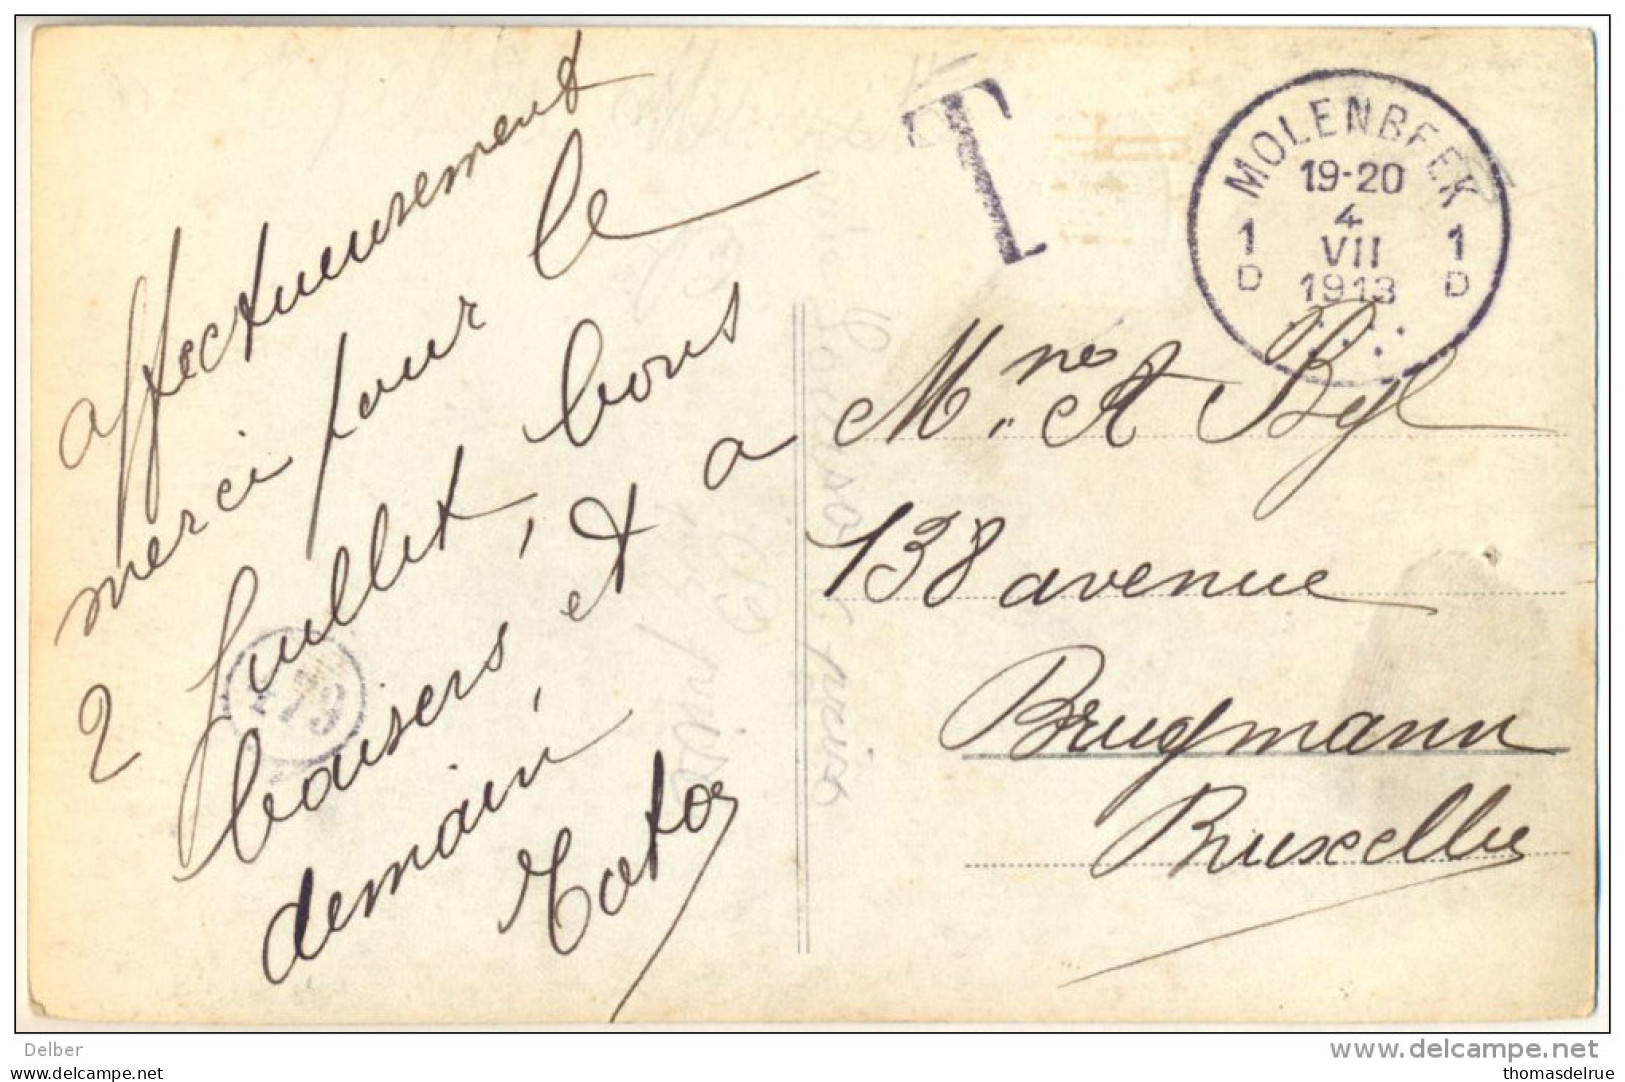 affectueusement
merci pour le
2 Juillet, bons
baisers, et a
demain,
Toto
T
MOLENBEEK
19-20
4
VII
1913
1 1
D D
M. A Byl
138 avenue
Brugmann
Bruxelles
Delber
www.delcampe.net
www.delcampe.com
thomasdelrue